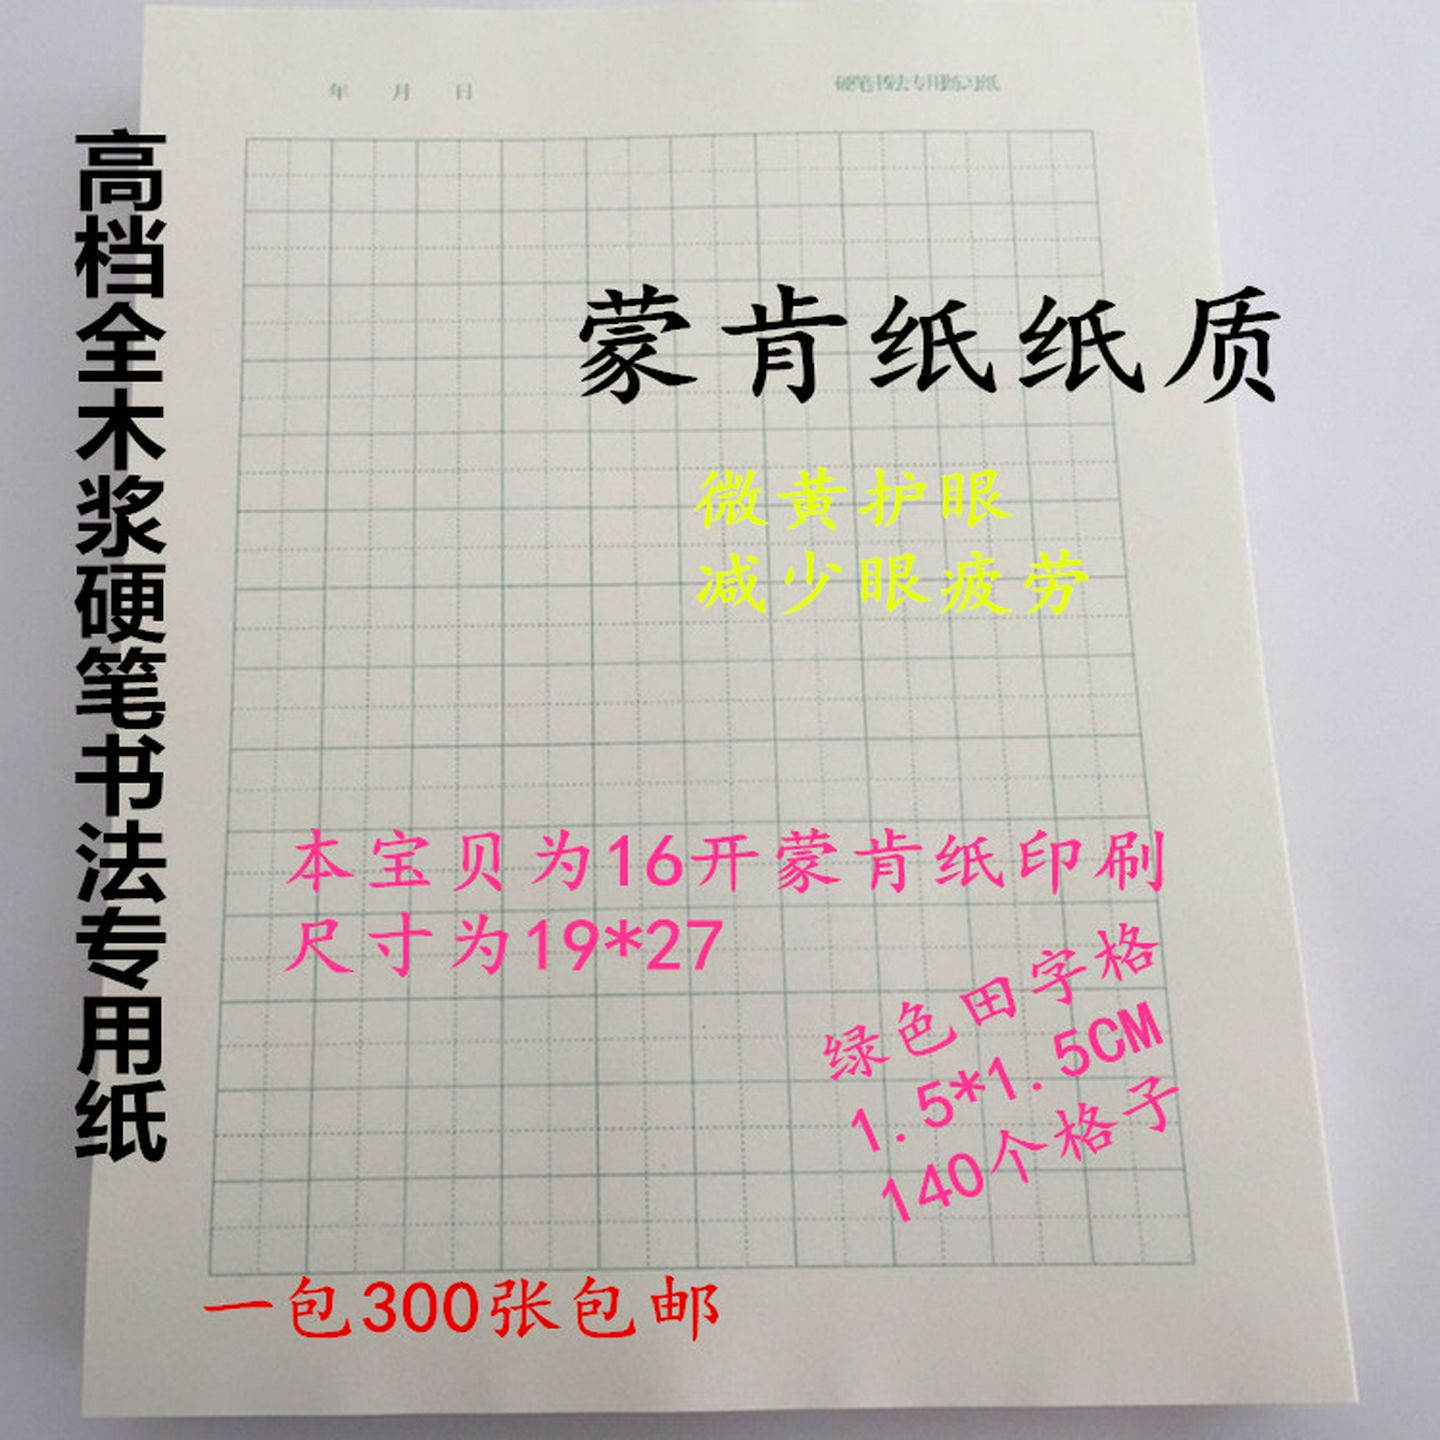 年 月 日
硬笔书法专用练习纸
高档全木浆硬笔书法专用纸
蒙肯纸纸质
微黄护眼
减少眼疲劳
本宝贝为16开蒙肯纸印刷
尺寸为19*27
绿色田字格
1.5*1.5CM
140个格子
一包300张包邮